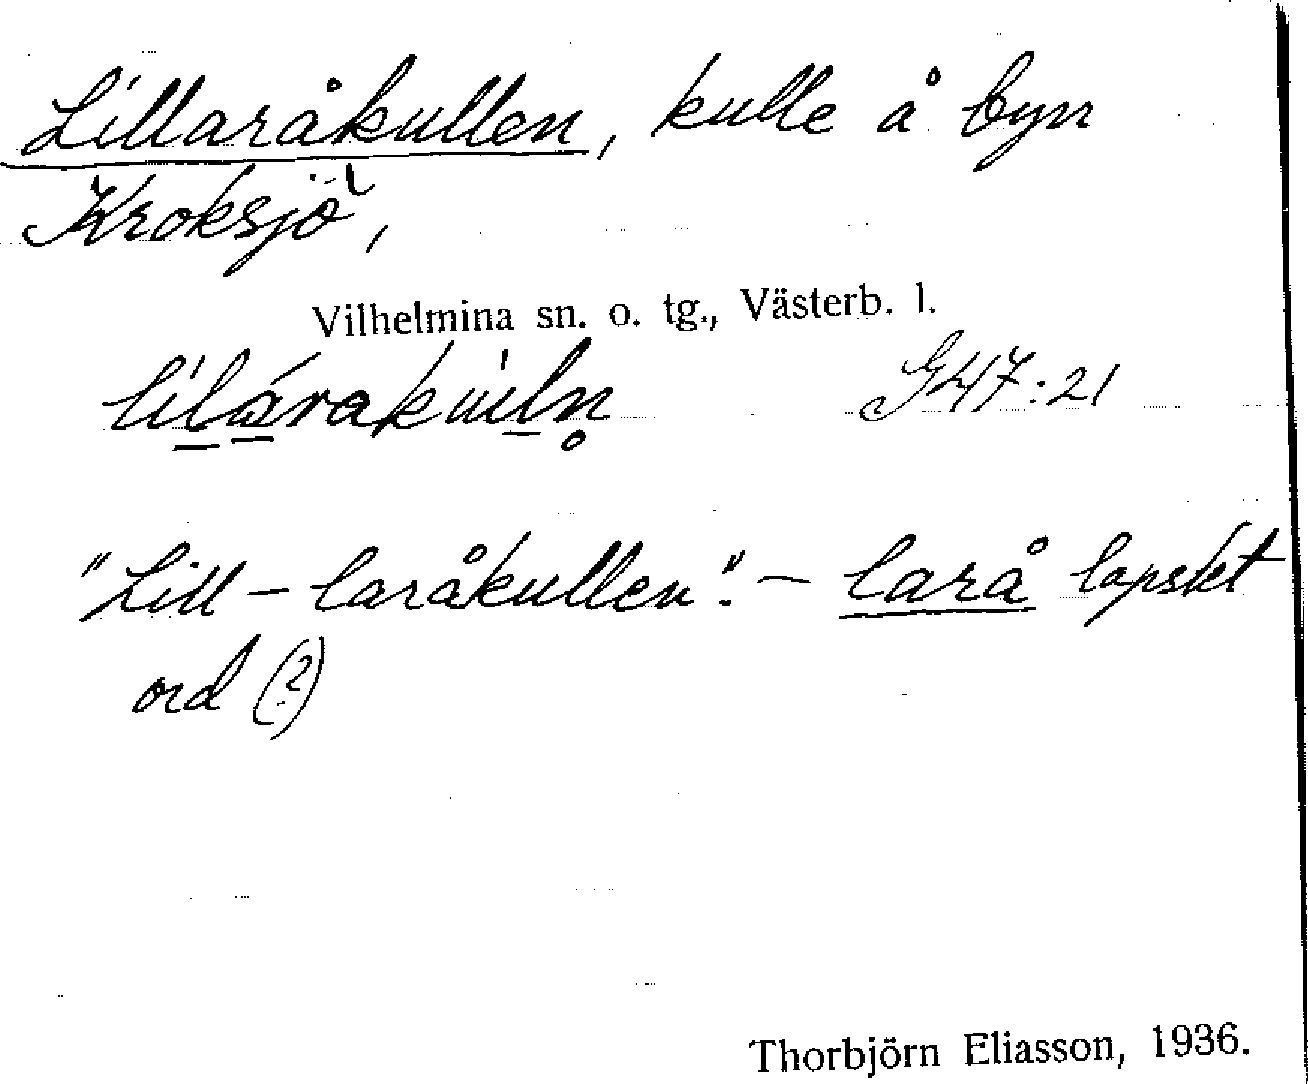 Lillaråkullen, kulle å byn
Kroksjö,
Vilhelmina sn. o. tg., Västerb. l.
G47:21
"Lill-laråkullen". - larå lapskt
ord (?)
Thorbjörn Eliasson, 1936.